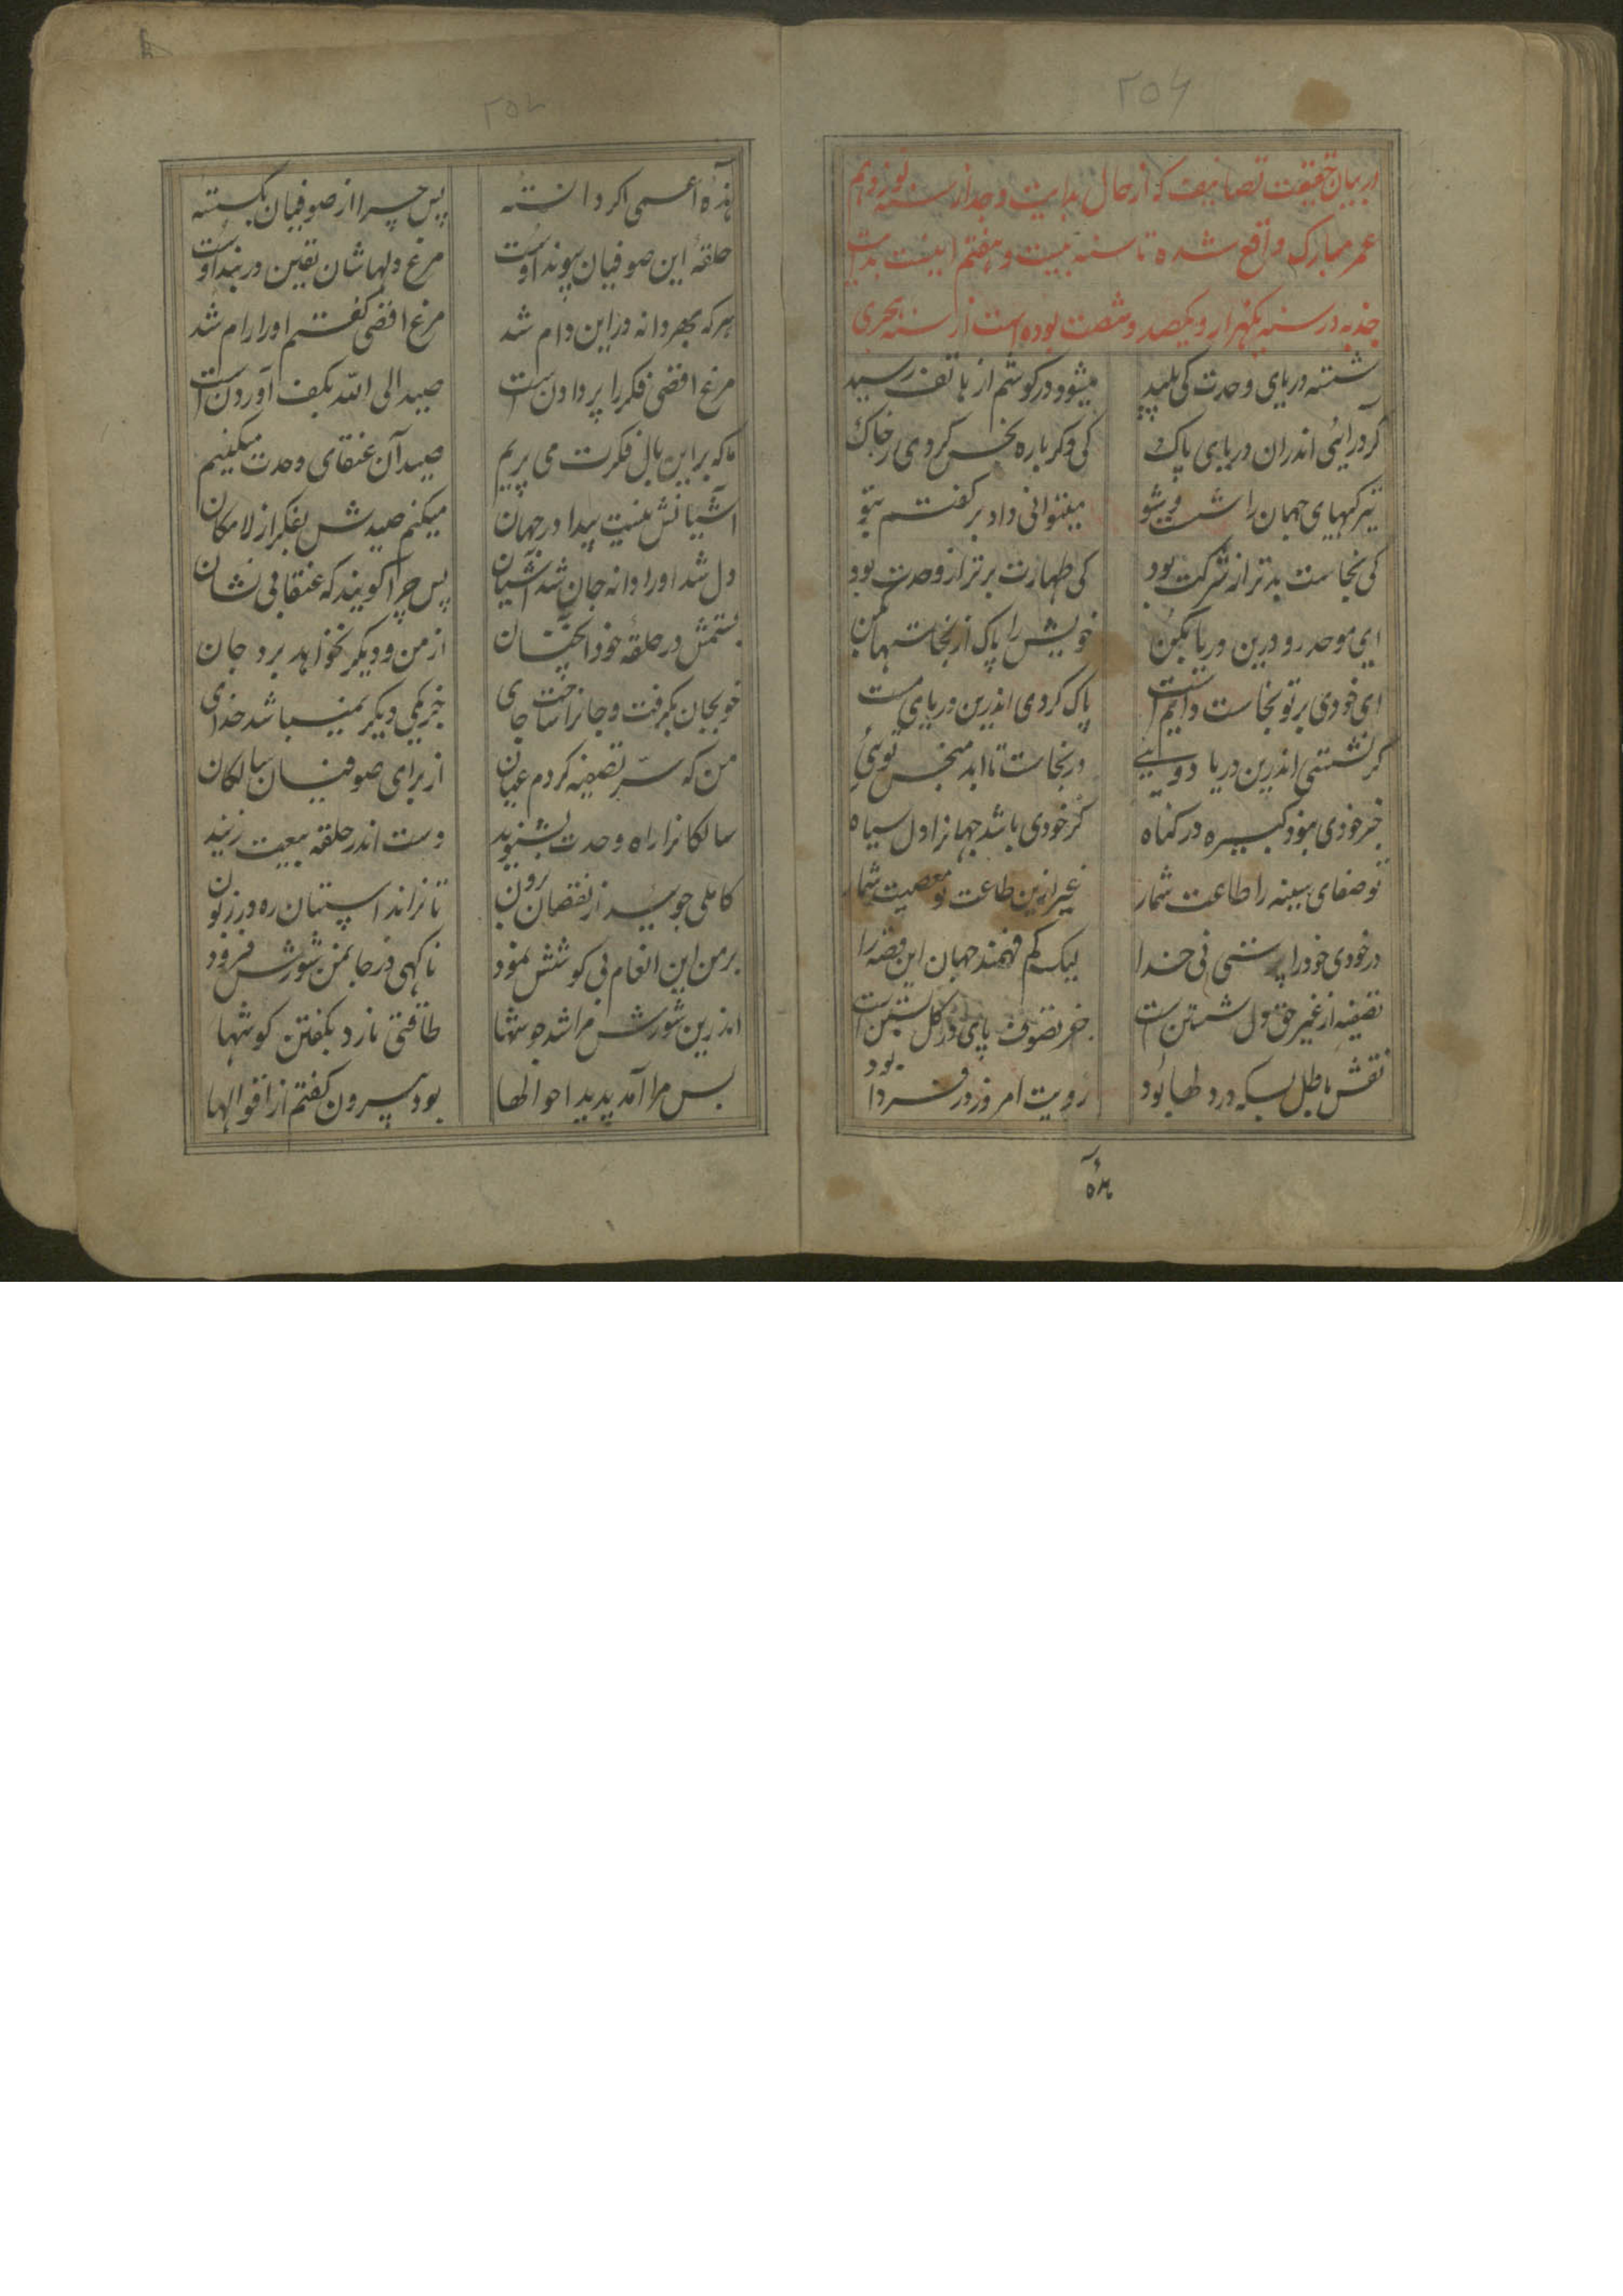 ۲۵۶
در بیان حقیقت تصانیف که از حال بدایت وجد از سنه نوزدهم
عمر مبارک واقع شده تا سنه بیست و هفتم اینست بدایت
جذبه در سنه یکهزار و یکصد و شصت بوده است از سنه هجری
میشود در کوشم از هاتف رسید شسته دریای وحدت کی پلید
کر درائی اندران دریای پاک کی دکر باره نجس کردی ز خاک
تیرکیهای جهان را شست و شو میتوانی داد بر کفتم بتو
کی نجاست بدتر از شرکت بود کی طهارت برتر از وحدت بود
ای موحد رو درین دریا بکن خویش را پاک از نجاستها بکن
ای خودی بر تو نجاست دایم است پاک کردی اندرین دریای مست
کر نشستی اندرین دریا دویی در نجاست تا ابد منجس توئی
جز خودی نبود کبیره در کناه کز خودی باشد جهانرا دل سیاه
تو صفای سینه را طاعت شمار غیر ازین طاعت تو معصیت شمار
در خودی خود را پرستی نی خدا لیک کم فهمند جهان این قصه را
تصفیه از غیر حق دل شستن است جز تصوف پای در کل بستن است
نقش باطل بسکه در دلها بود رویت امروز در فردا بود
هذه
هذه اعمی اکر دانسته پس چرا از صوفیان بکسته
حلقه این صوفیان پیوند اوست مرغ دلهاشان یقین در بند اوست
هر که بهر دانه در این دام شد مرغ اقضی کفتم او را رام شد
مرغ اقضی فکر را پر دادن است صید الی الله بکف آوردن است
ما که بر این بال فکرت می پریم صید آن عنقای وحدت میکنیم
آشیانش نیست پیدا در جهان میکنم صیدش بفکر از لامکان
دل شد او را دانه جان شد آشیان پس چرا کویند که عنقا بی نشان
بستمش در حلقه خود آنچنان از من و دیکر نخواهد برد جان
خو بجان بکرفت و جانرا ساخت جای جز یکی دیکر نمیباشد خدای
من که سر تصفیه کردم عیان از برای صوفیان سالکان
سالکانرا راه وحدت بشنوید دست اندر حلقه بیعت زنید
کاملی جویید از نقصان برون تا نراند اسپتان ره در زبون
بر من این انعام بی کوشش نمود ناکهی در جا بمن شورش فزود
اندرین شورش مرا شد جوشها طاقتی نارد بکفتن کوشها
بس مرا آمد پدید احوالها بود بیرون کفتم از اقوالها